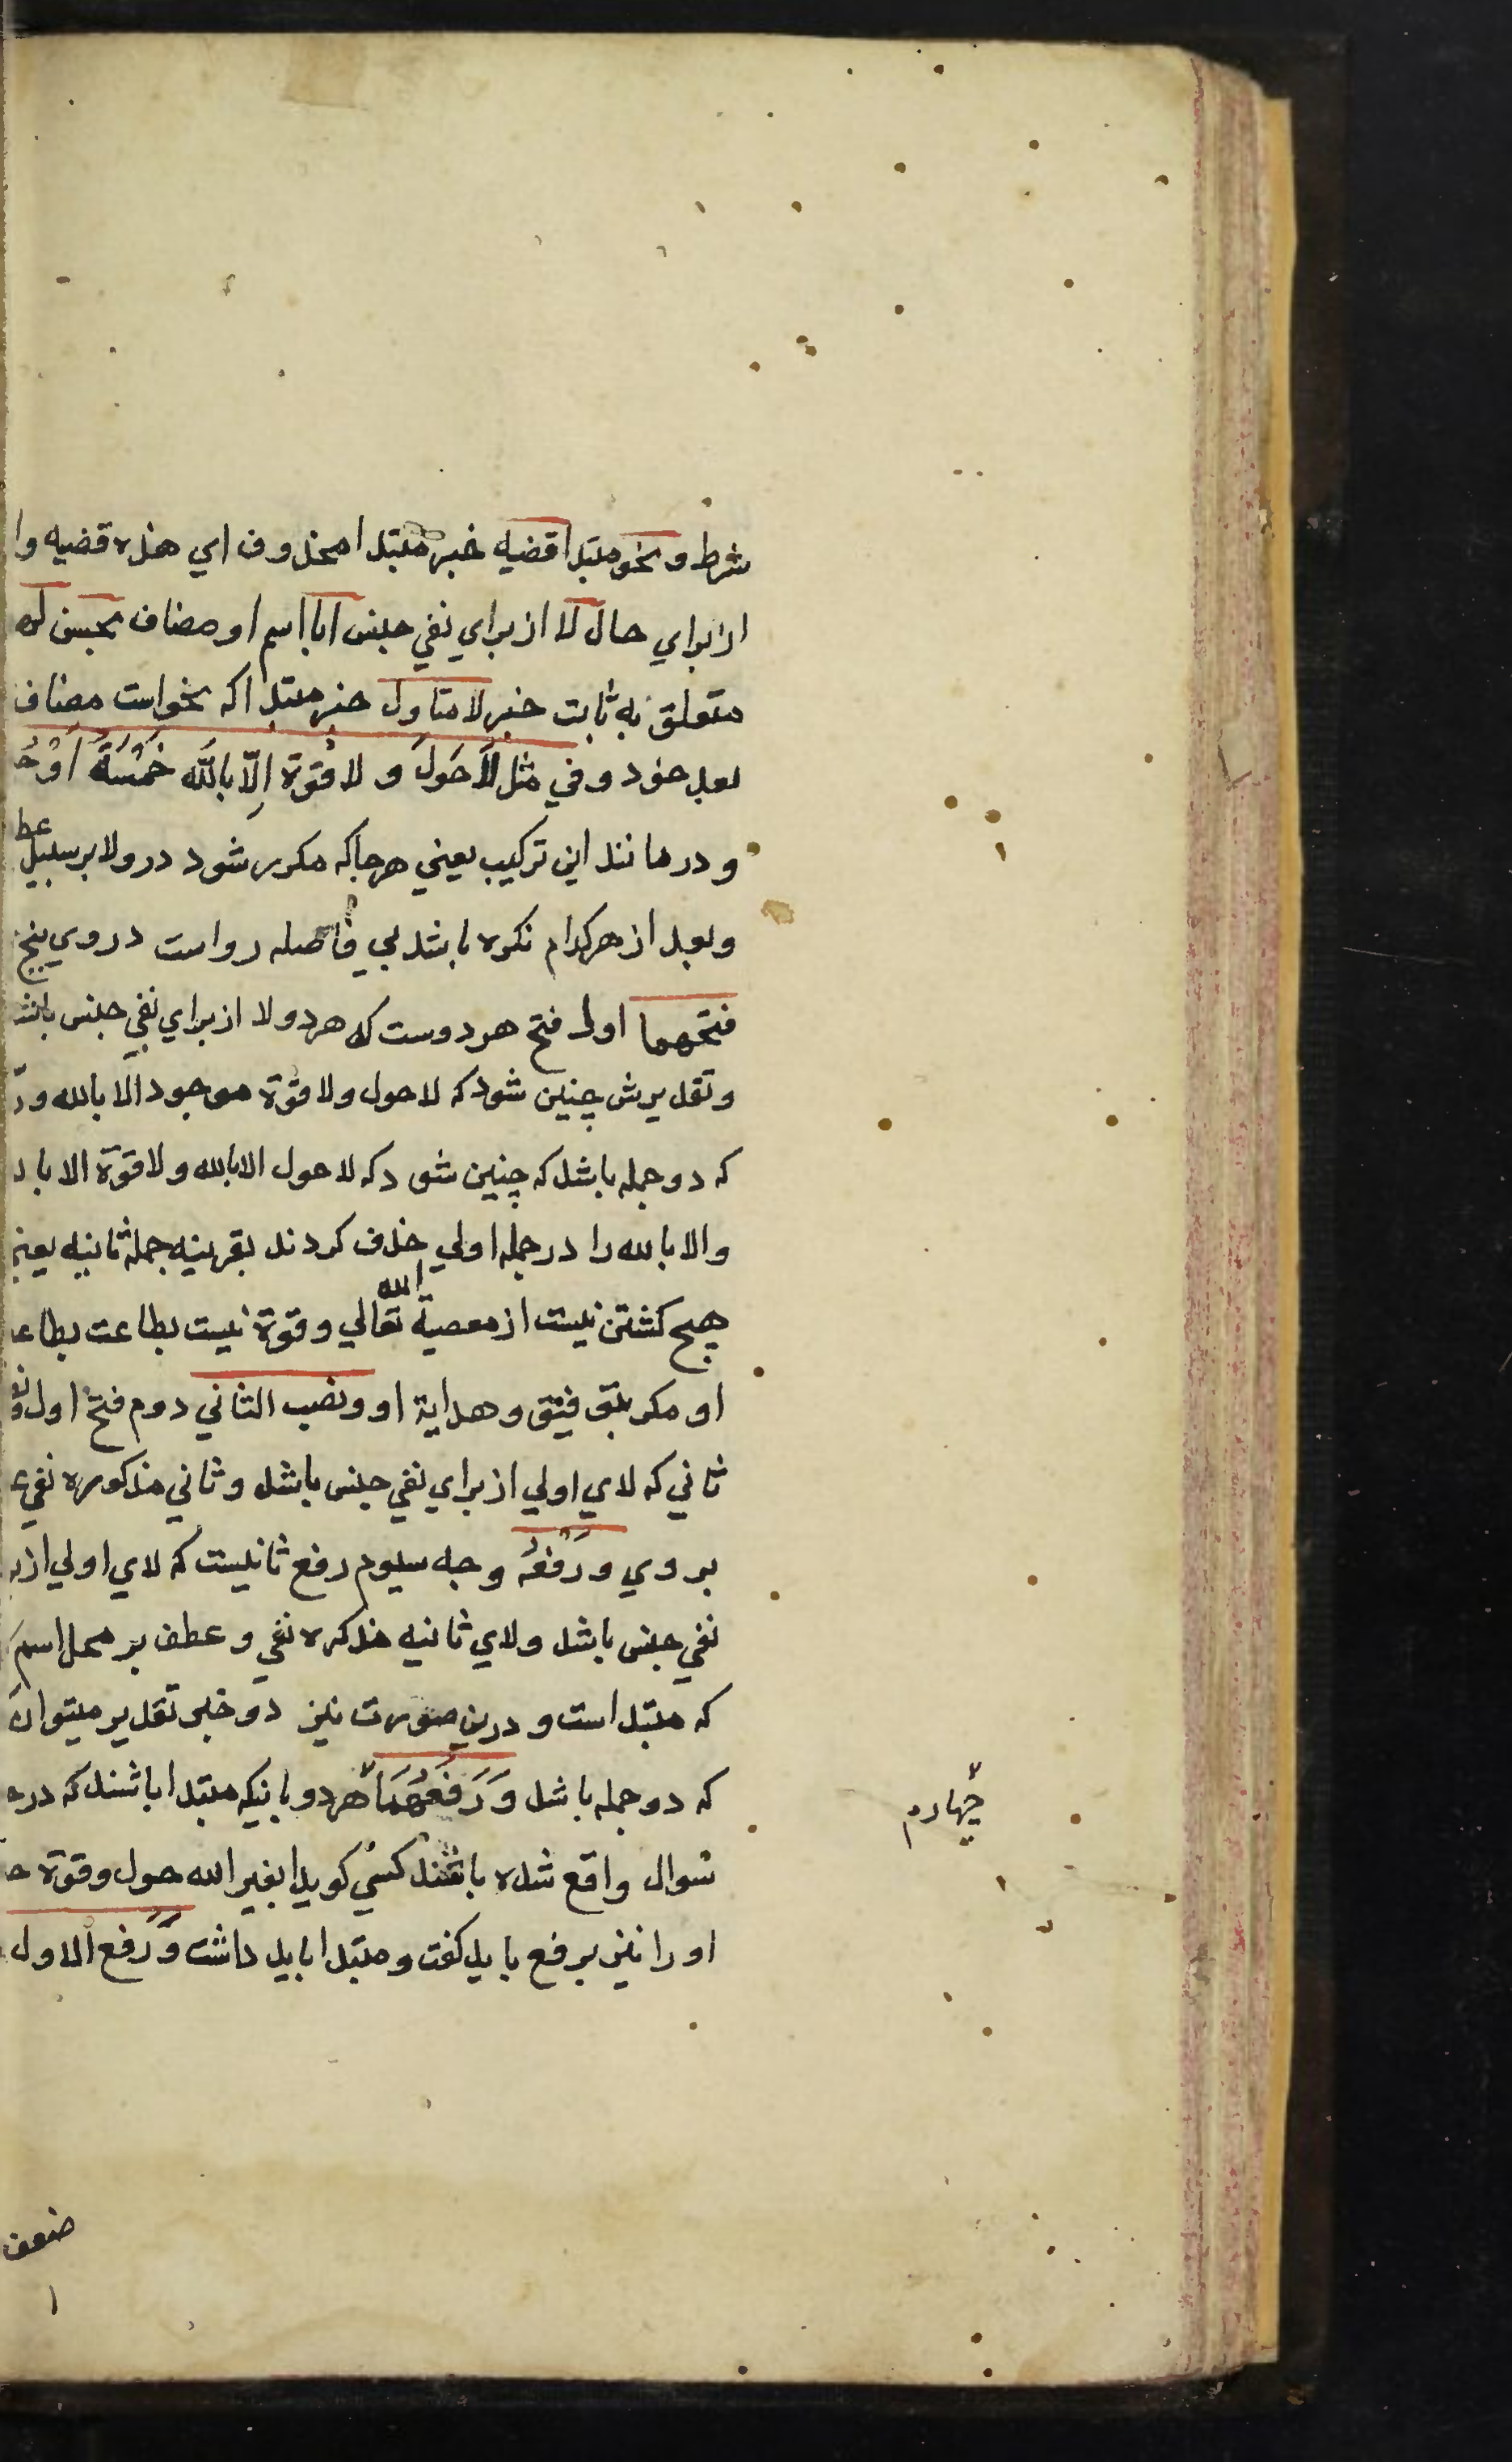 شرط و نحو مبتدا قضیه خبر مبتدا محذوف ای هذه قضیه وا
از برای حال لا از برای نفی جنس ابا اسم او مضاف بحسن له
متعلق به ثابت خبر لا متاول خبر مبتدا که نحواست مضاف
بعد خود و في مثل لَاحَولَ و لا قُوة اِلّا بالله خَمْسَةُ اَوْجُ
و در مانند این ترکیب یعنی هرجا که مکرر شود درو لا بر سبیل عط
و بعد از هرکدام نکره باشد بی فاصله رواست در وی پنج
فتحهما اول فتح هر دوست که هر دو لا از برای نفی جنس باشد
و تقدیرش چنین شود که لا حول ولا قوّة موجود الا بالله و
که دو جمله باشد که چنین شود که لا حول الا بالله ولا قوّة الا با
والا بالله را در جمله اولی حذف کردند بقرینه جمله ثانیه یعنی
هیچ کشتن نیست از معصیة الله تعالی و قوّة نیست بطاعت بطاع
او مکر بتوفیق و هدایة او و نصب الثاني دوم فتح اول و
ثانی که لای اولی از برای نفی جنس باشد و ثانی مذکوره نفی
بر وی و رَفْعُه وجه سیوم رفع ثانیست که لای اولی از
نفی جنس باشد ولای ثانیه مذکره نفی و عطف بر محل اسم
که مبتداست و درین صورت نیز دو خبر تقدیر میتوان
که دو جمله باشد وَرَفْعُهُمَا هر دو بانیکه مبتدا باشند که در
سوال واقع شده باشند کسی کوید ابغیر الله حول و قوة
او را نیز برفع باید کفت و مبتدا باید داشت وَرَفع الاول
چهارم
ضعف